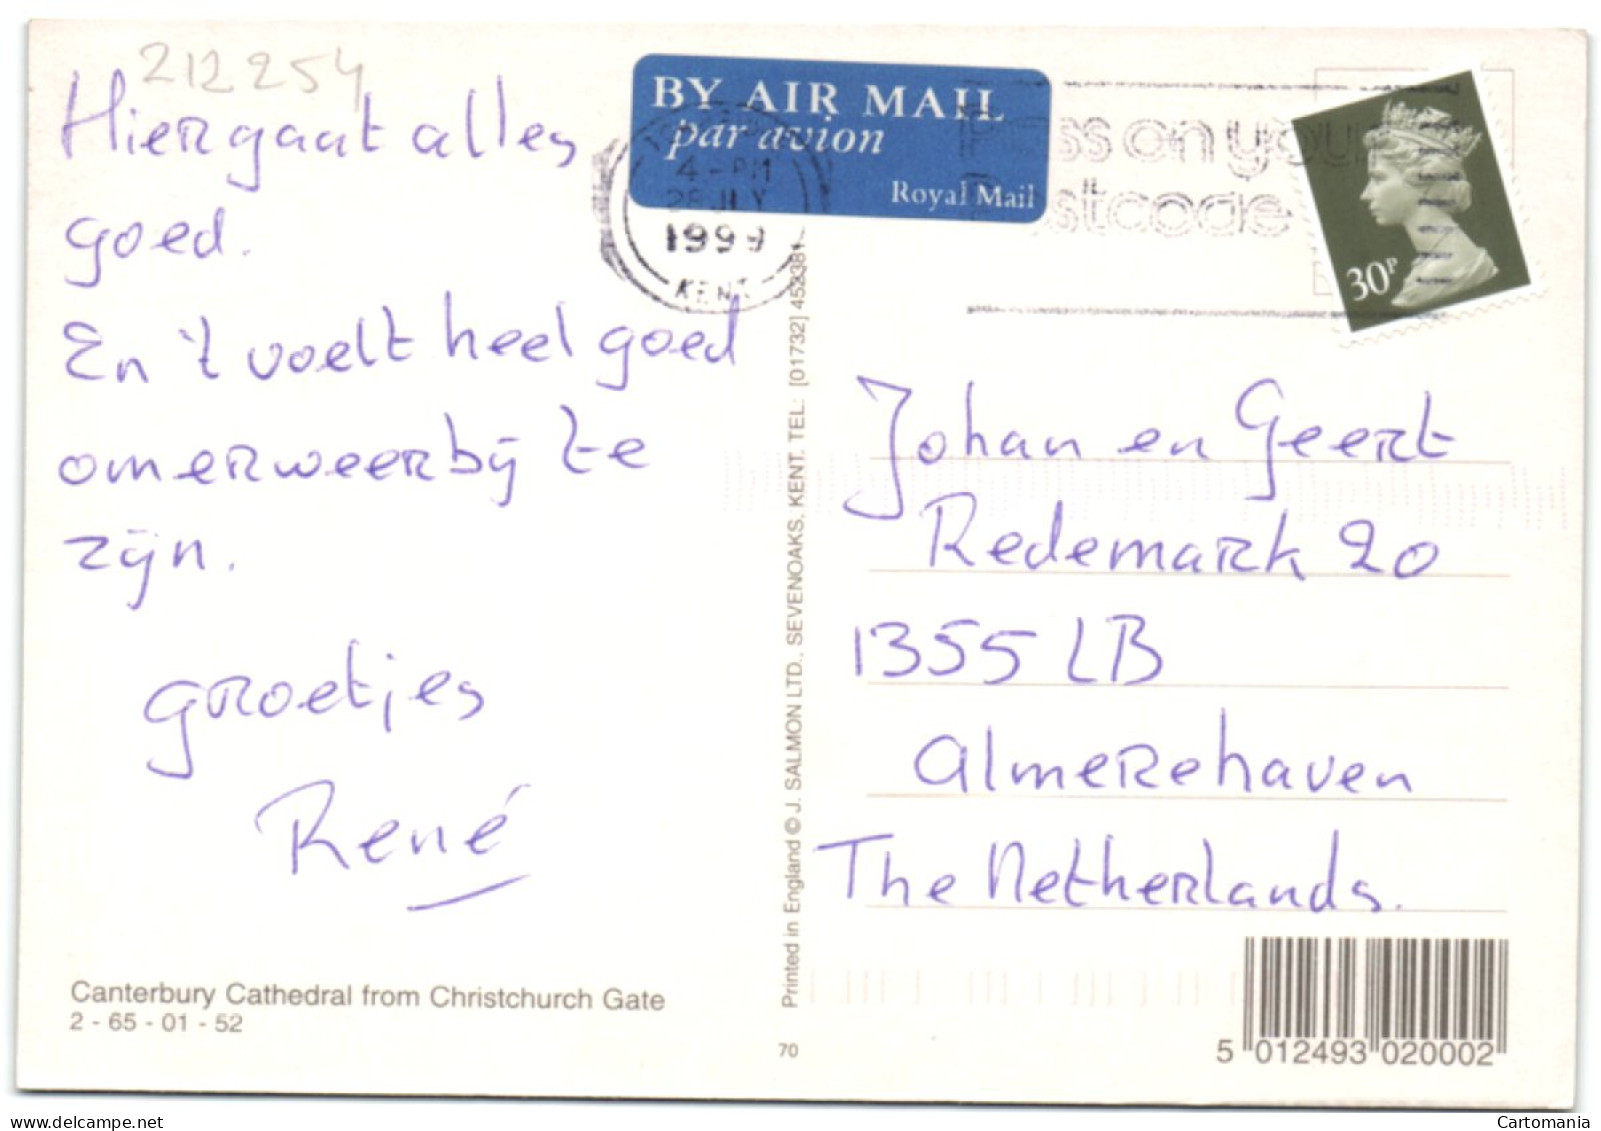 212254
Hier gaat alles
goed.
En 't voelt heel goed
om er weer bij te
zijn.
groetjes
René
Canterbury Cathedral from Christchurch Gate
2 - 65 - 01 - 52
BY AIR MAIL
par avion
Royal Mail
4 - PM
28 JLY
1999
KENT
Pass on your
Postcode
30P
Printed in England © J. SALMON LTD., SEVENOAKS, KENT. TEL: [01732] 452381
70
Johan en Geert
Redemark 20
1355 LB
Almerehaven
The Netherlands.
5 012493 020002
Cartomania